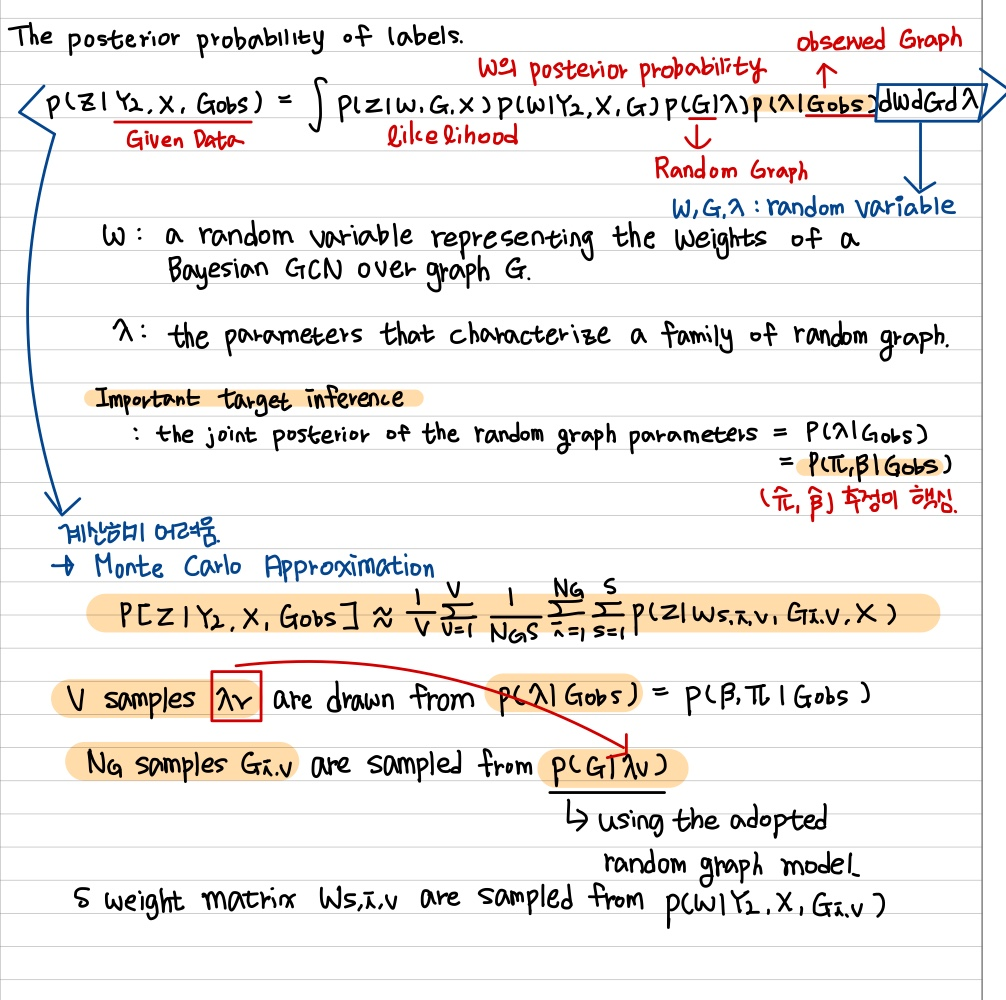 The posterior probability of labels.
observed Graph
W의 posterior probability
p(Z|Y2, X, Gobs) = ∫ p(z|W, G, X) p(W|Y2, X, G) p(G|λ) p(λ|Gobs) dWdGdλ
Given Data
likelihood
Random Graph
W, G, λ : random variable
W : a random variable representing the weights of a
Bayesian GCN over graph G.
λ : the parameters that characterize a family of random graph.
Important target inference
: the joint posterior of the random graph parameters = P(λ|Gobs)
= P(π, β|Gobs)
(π̂, β̂) 추정이 핵심.
계산하기 어려움.
→ Monte Carlo Approximation
P[Z|Y2, X, Gobs] ≈ 1/V Σ_{v=1}^{V} 1/(NGS) Σ_{i=1}^{NG} Σ_{s=1}^{S} p(Z|Ws,i,v, Gi,v, X)
V samples λv are drawn from p(λ|Gobs) = p(β, π|Gobs)
NG samples Gi,v are sampled from p(G|λv)
↳ using the adopted
random graph model.
S weight matrix Ws,i,v are sampled from p(W|Y2, X, Gi,v)